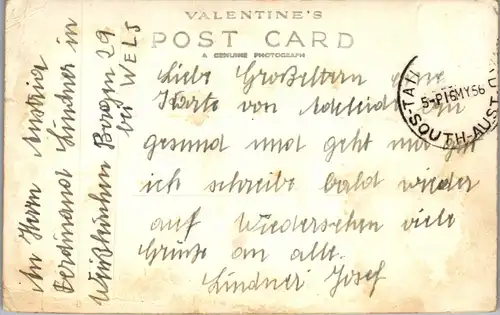 VALENTINE'S
POST CARD
A GENUINE PHOTOGRAPH
Liebe Großeltern eine
Karte von Adelaide bin
gesund und geht mir gut
ich schreibe bald wieder
auf Wiedersehen viele
Grüße an alle.
Lindner Josef
An Herrn Austria
Ferdinand Lindner in
Weißkirchen Bergern 29
bei WELS
5-P 16MY56
SOUTH-AUST